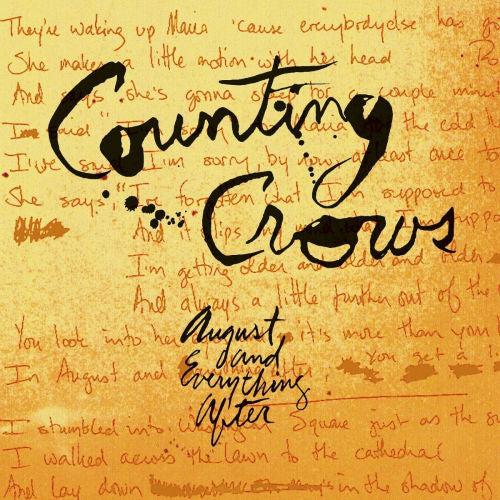 They're waking up Maria 'cause everybody else has go
She makes a little motion with her head
Ro
Counting
And says she's gonna sleep for a couple minu
I'm said "I'm sorry Maria for the cold h
I've said I'm sorry, by now, at least once to
She says, "I've forgotten what I'm supposed to
Crows
And it slips my mind what I'm supp
I'm getting older and older and older
And always a little further out of the
August
and
Everything
After
You look into her it's more than your
In August and Everything After You get a
I stumbled into Washington Square just as the su
I walked across the lawn to the cathedral
And lay down in the shadow of